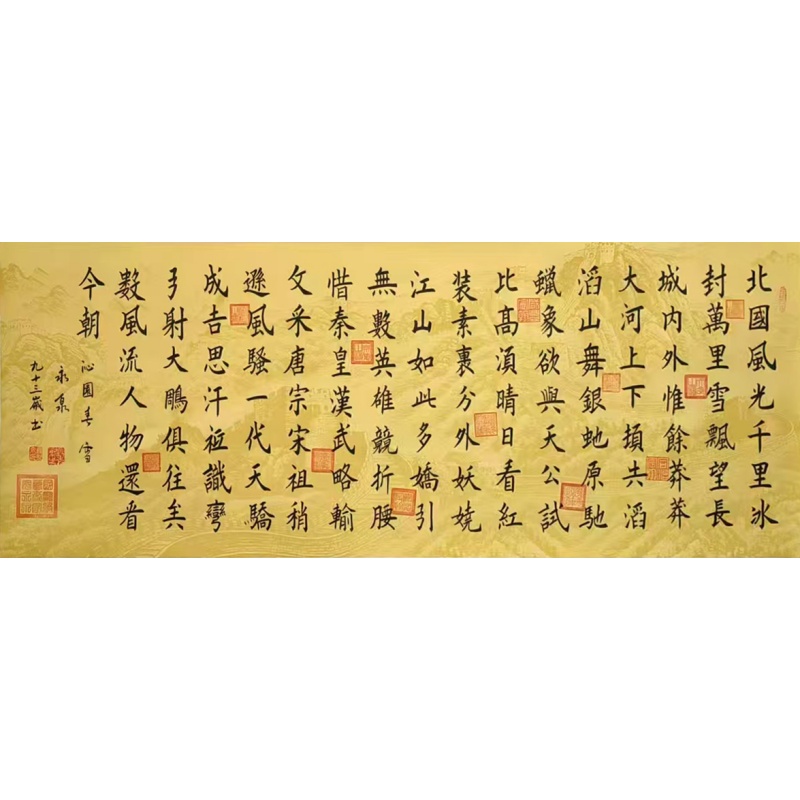 北國風光千里冰
封萬里雪飄望長
城内外惟餘莽莽
大河上下頓失滔
滔山舞銀蛇原馳
蠟象欲與天公試
比高須晴日看紅
装素裹分外妖嬈
江山如此多嬌引
無數英雄競折腰
惜秦皇漢武略輸
文采唐宗宋祖稍
遜風騷一代天驕
成吉思汗祗識彎
弓射大鵰俱往矣
數風流人物還看
今朝
沁園春雪
永泉
九十三歲书